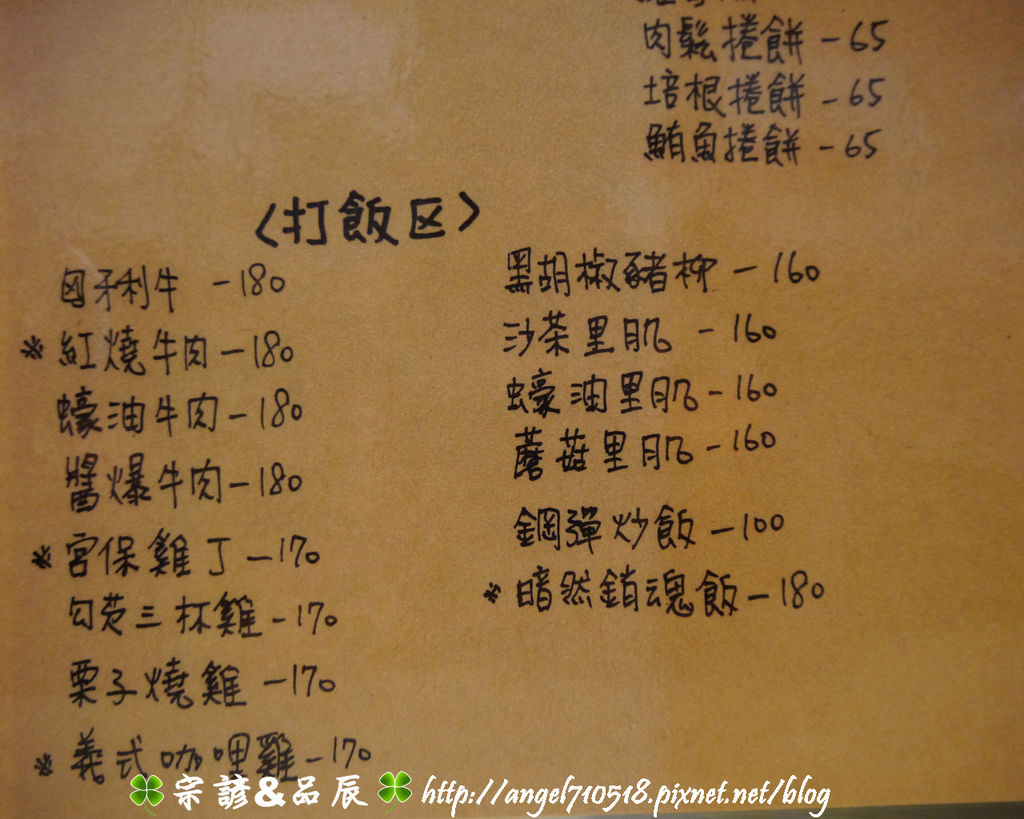 肉鬆捲餅 - 65
培根捲餅 - 65
鮪魚捲餅 - 65
〈打飯区〉
匈牙利牛 - 180
※ 紅燒牛肉 - 180
蠔油牛肉 - 180
醬爆牛肉 - 180
※ 宮保雞丁 - 170
勾芡三杯雞 - 170
栗子燒雞 - 170
※ 義式咖哩雞 - 170
黑胡椒豬柳 - 160
沙茶里肌 - 160
蠔油里肌 - 160
蘑菇里肌 - 160
鋼彈炒飯 - 100
※ 暗然銷魂飯 - 180
宗諺&品辰 http://angel710518.pixnet.net/blog